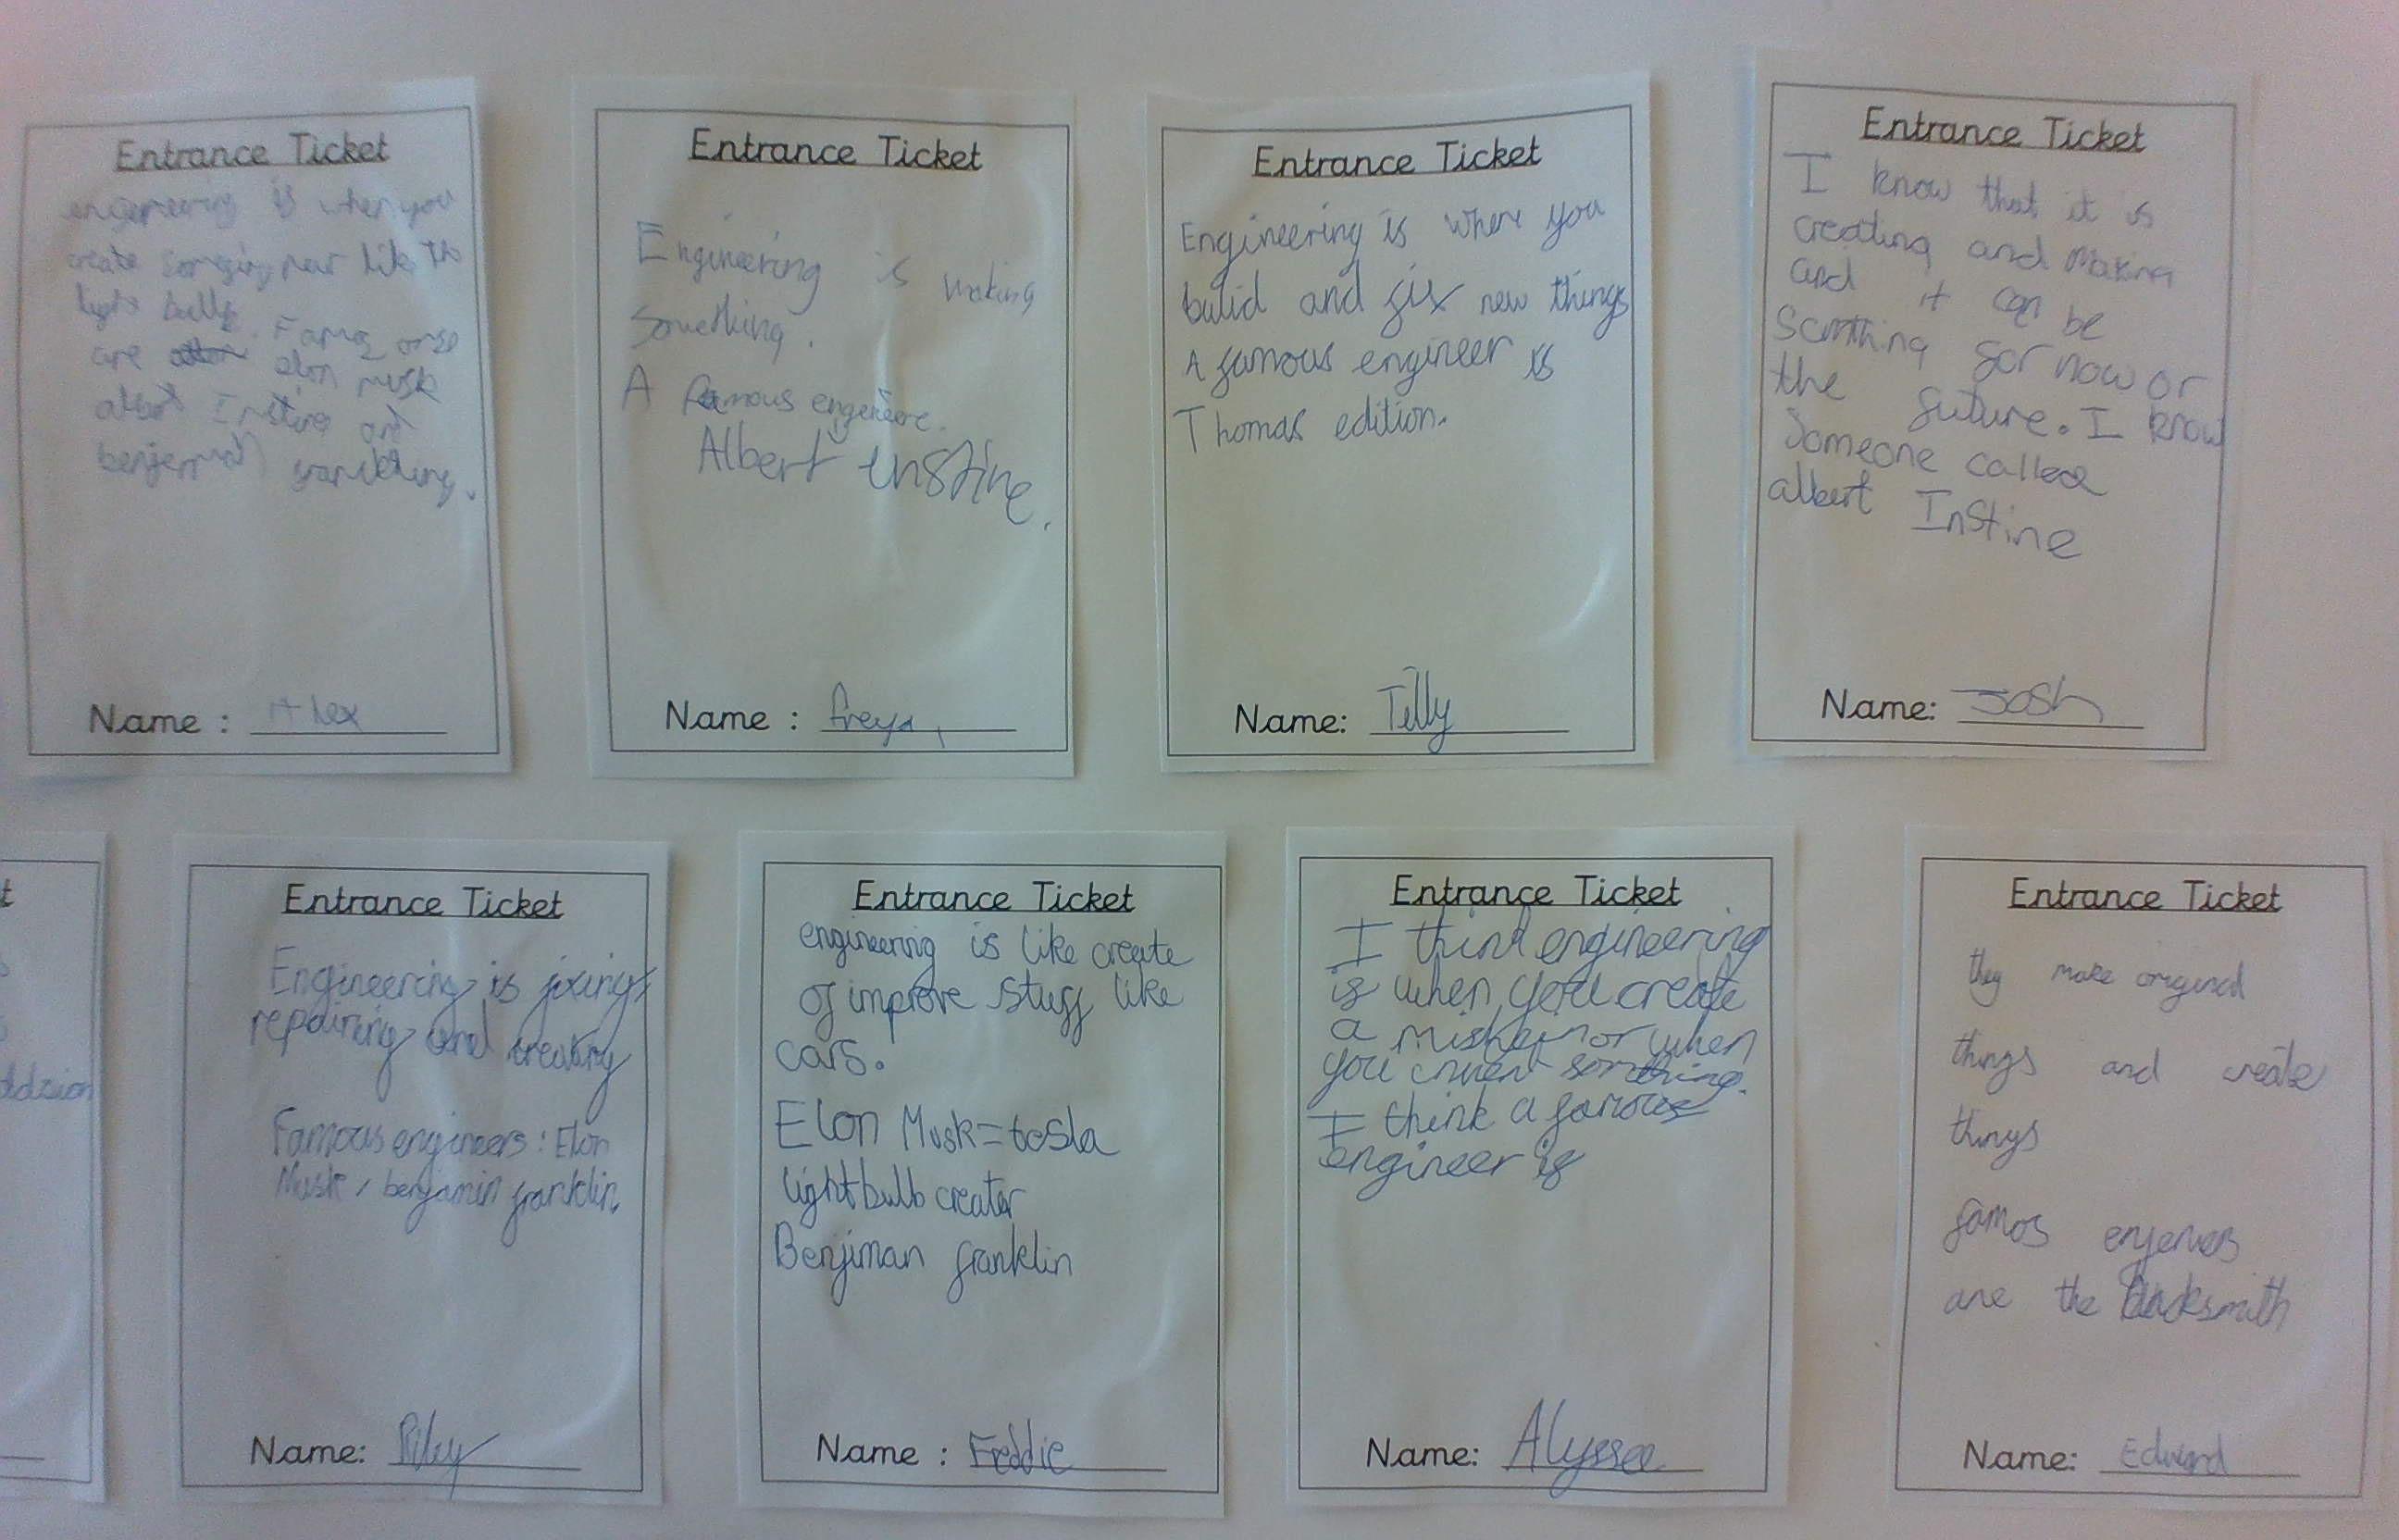 Entrance Ticket
engeneering is when you
create new like the
light bulb. Famos onse
are elon musk
albert Instine and
benjerman
Name : Alex
Entrance Ticket
Engineering is making
Something.
A famous engeneere.
Albert enstine.
Name : freya
Entrance Ticket
Engineering is where you
bulid and fix new things
A famous engineer is
Thomas edition.
Name: Tilly
Entrance Ticket
I know that it is
creating and making
and it can be
Somthing for now or
the future. I know
Someone called
albert Instine
Name: Josh
Entrance Ticket
Engineering is fixing,
repairing and creating
Famous engineers : Elon
Musk, benjamin franklin.
Name: Riley
Entrance Ticket
engineering is like create
of improve stuff like
cars.
Elon Musk = tesla
lightbulb creator
Benjiman franklin
Name : Freddie
Entrance Ticket
I think engineering
is when you create
a or when
you invent something.
I think a famous
engineer is
Name: Alyssa
Entrance Ticket
they make original
things and create
things
famos
are the blacksmith
Name: Edward